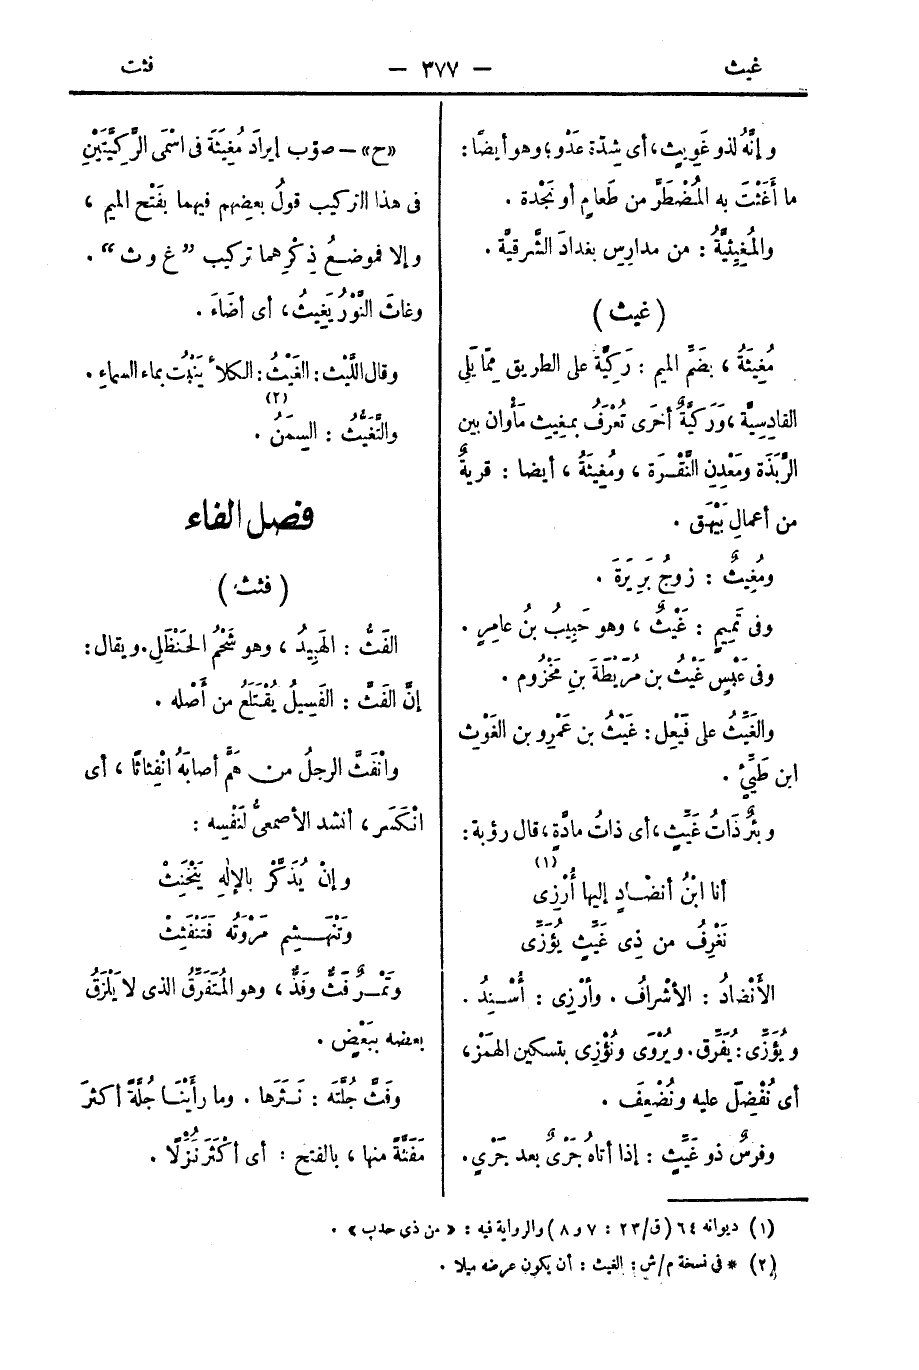 غيث — ٣٧٧ — فثث
وإنَّهُ لذو غَوِيثٍ، أى شِدّة عَدْوٍ؛ وهو أيضًا:
ما أَغَثْتَ به المُضْطَرَّ من طَعامٍ أو نَجْدة .
والمُغِيثِيَّةُ : من مدارِسِ بغدادَ الشَّرقيَّة .
(غيث)
مُغِيثَةُ ، بضَمِّ الميم : رَكِيَّة على الطريق مِمَّا يَلِى
القادِسِيَّة ، ورَكِيَّةٌ أخرَى تُعْرَفُ بمغيث مَأْوان بين
الرَّبَذَة ومَعْدِن النَّقْرَة ، ومُغِيثَةُ ، أيضا : قريةٌ
من أعمالِ بَيْهَق .
ومُغِيثٌ : زوجُ بَرِيرَةَ .
وفى تَمِيمٍ : غَيْثٌ ، وهو حَبِيبُ بنُ عامِرٍ .
وفى عَبْسٍ غَيْثُ بن مُرَيْطَةَ بنِ مَخْزُوم .
والغَيِّثُ على فَيْعِل : غَيِّثُ بن عَمْرِو بن الغَوْث
ابن طَيِّئٍ .
وبئرٌ ذَاتُ غَيِّثٍ، أى ذاتُ مادَّةٍ، قال رؤبة:
أنا ابْنُ أنضادٍ إليها أُرْزِى (١)
نَغْرِفُ من ذِى غَيِّثٍ يُؤَزِّى
الأَنْضادُ : الأشْرافُ . وأرْزِى : أُسْنِدُ .
ويُؤَزِّى : يُفَرِّق . ويُرْوَى ونُؤْزِى بتسكين الهمْز،
أى نُفْضِلُ عليه ونُضْعِف .
وفرسٌ ذو غَيِّثٍ : إذا أتاهُ جَرْىٌ بعد جَرْىٍ.
«ح» – صوّب إيرادَ مُغِيثَةَ فى اسْمَى الرَّكِيَّتَيْنِ
فى هذا التركيب قولُ بعضِهم فيهما بفَتْح الميم ،
وإلا فموضعُ ذِكْرِهما تركيب "غ و ث" .
وغاثَ النَّوْرُ يَغِيثُ، أى أضَاءَ .
وقال اللَّيْث : الغَيْثُ : الكلأ يَنْبُت بماء السماءِ .
والتَّغَيُّثُ : السِمَنُ (٢) .
فصل الفاء
(فثث)
الفَثُّ : الهَبِيدُ ، وهو شَحْمُ الحَنْظَلِ . ويقال :
إنَّ الفَثَّ : الفَسِيلُ يُقْتَلَعُ من أَصْله .
وانْفَثَّ الرجلُ من هَمٍّ أصابَهُ انْفِثاثًا ، أى
انْكَسَر ، أنشد الأصمعىُّ لنَفْسِه :
وإنْ يُذَكَّرْ بالإلٰهِ يَنْحَنِثْ
وتَنْهَشِم مَرْوَتُه فَتَنْفَثِثْ
وتَمْرٌ فَثٌّ وفَذٌّ ، وهو المُتَفَرِّقُ الذى لا يَلْزَقُ
بعضه ببَعْضٍ .
وفَثَّ جُلَّتَه : نَثَرَها . وما رأَيْنَا جُلَّةً أكثَرَ
مَفَثَّةً منها ، بالفتح : أى أكْثَرَ نُزُلًا .
(١) ديوانه ٦٤ (ق/٢٣ : ٧ و٨) والرواية فيه : «من ذي حدب» .
(٢) * فى نسخة م/ش : الغيث : أن يكون عرضه ميلا .